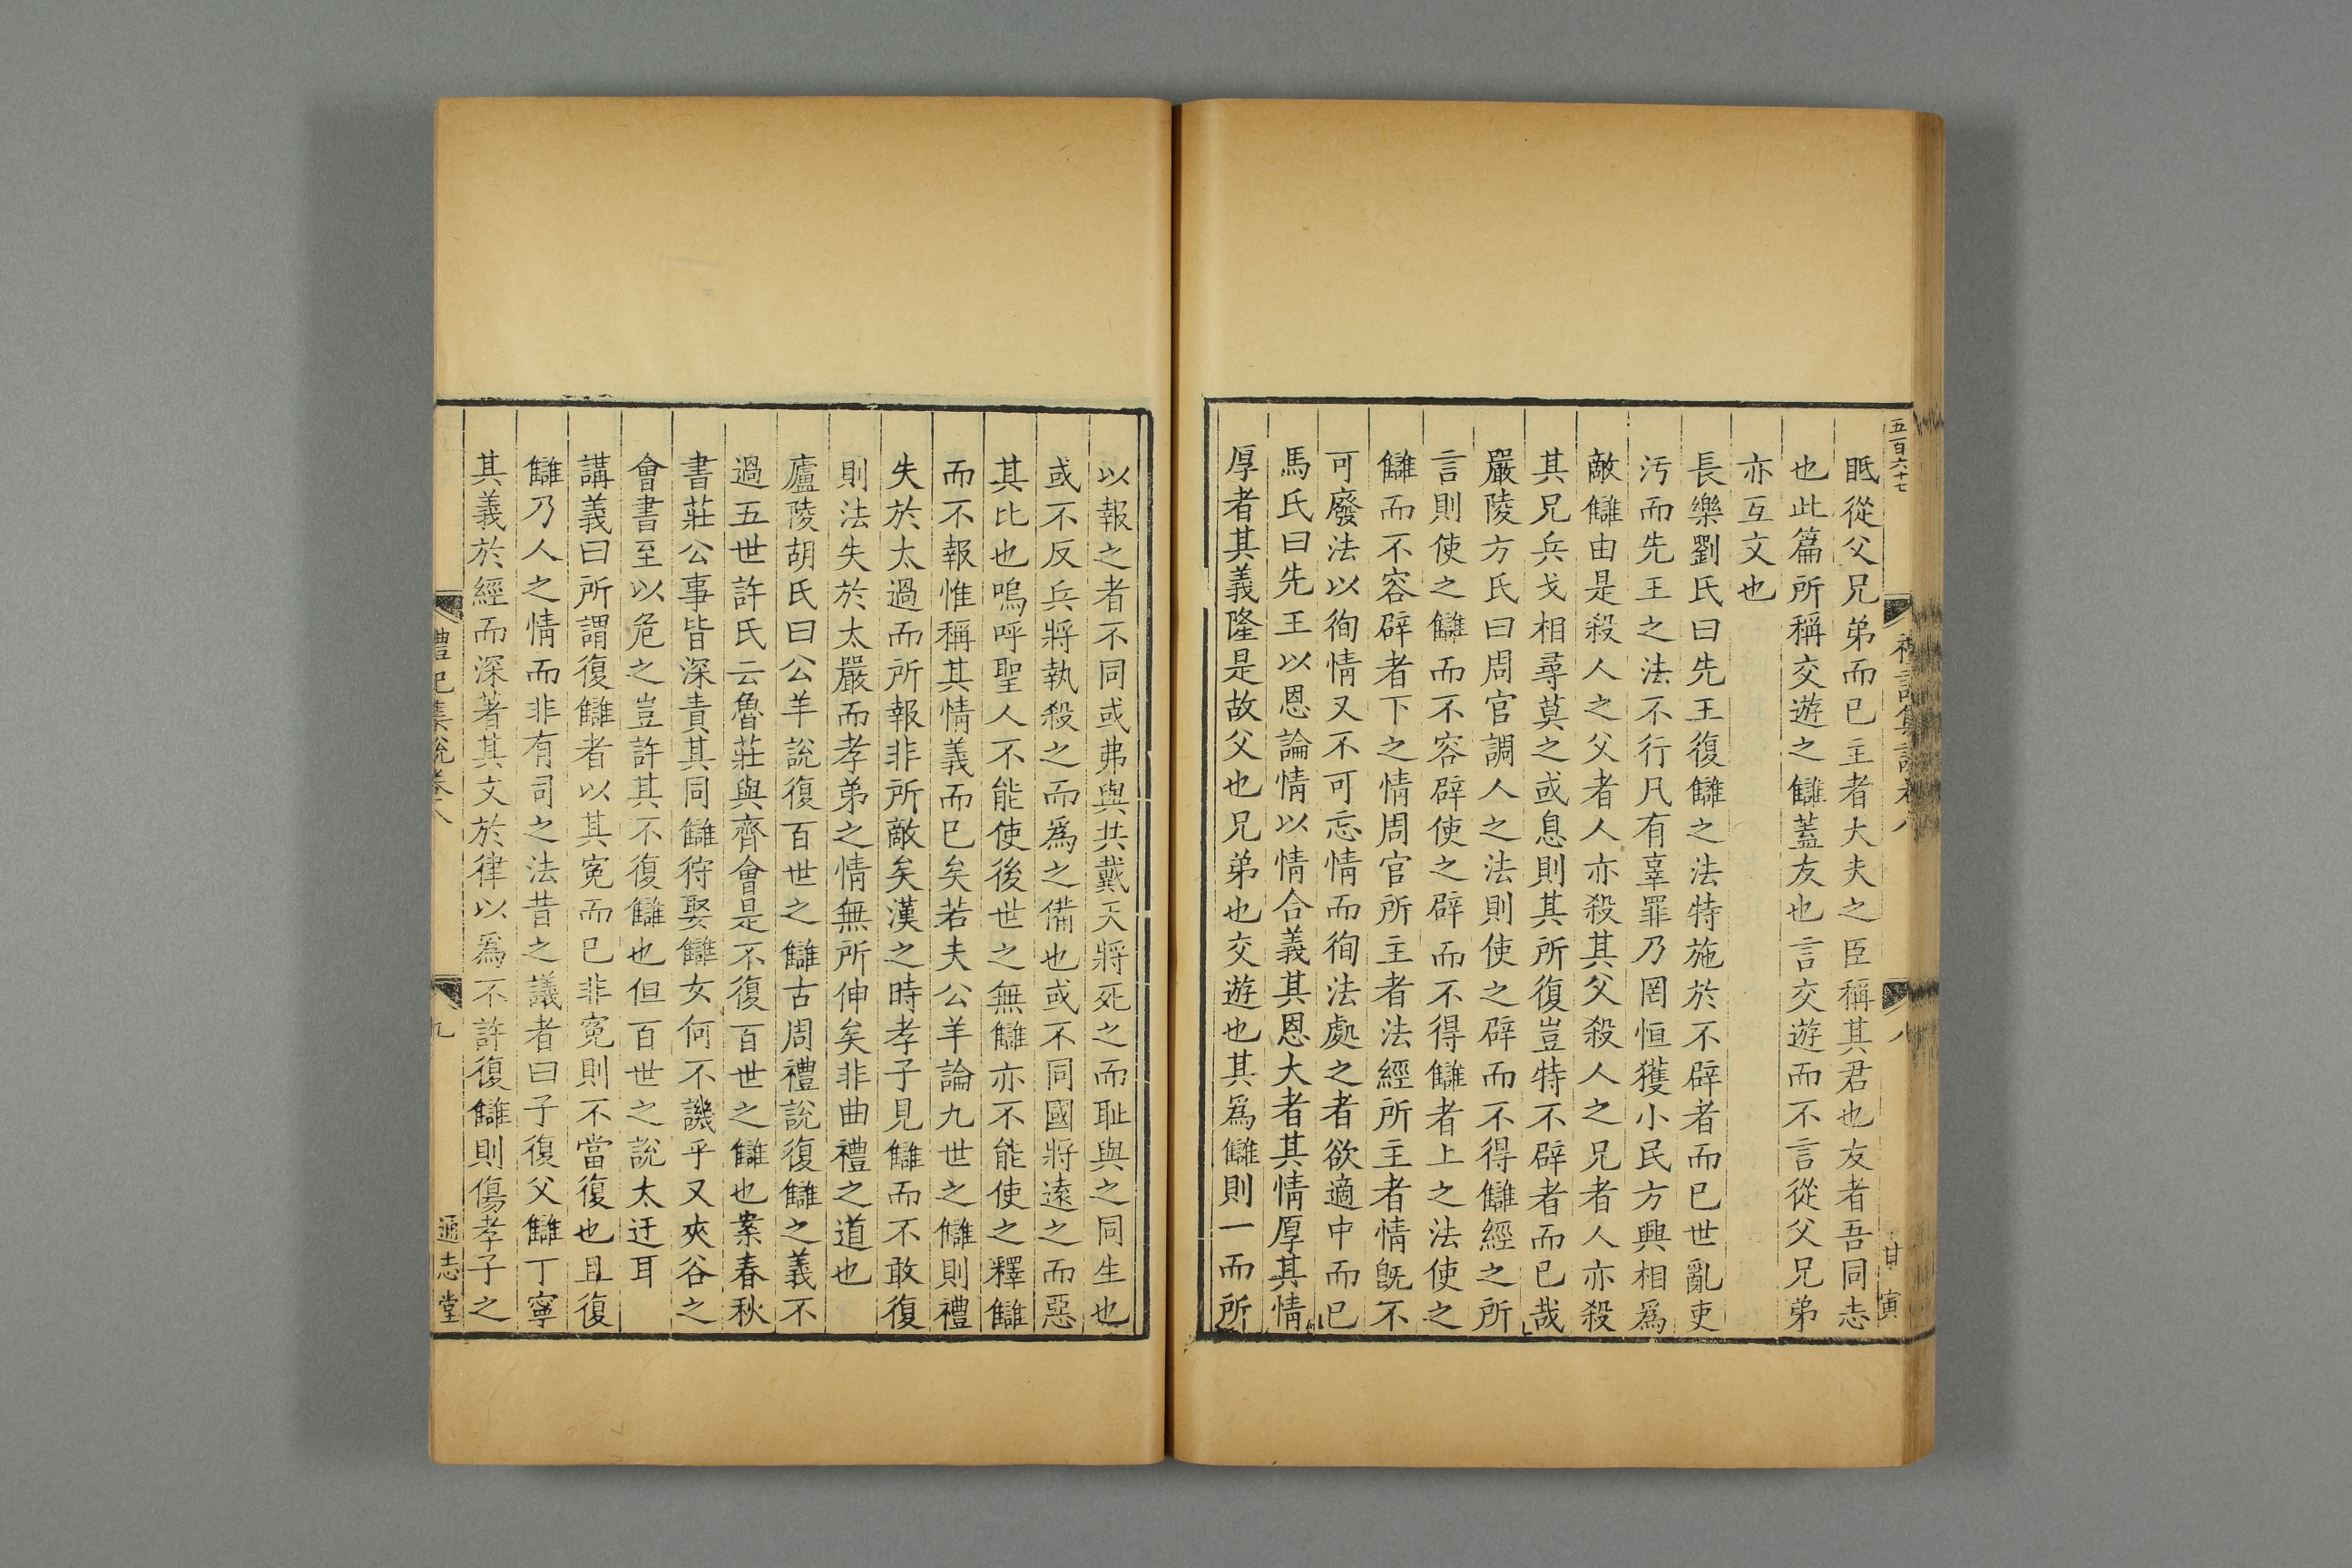 五百六十七
禮記集說卷八
八
甘寅
眂從父兄弟而已主者大夫之臣稱其君也友者吾同志
也此篇所稱交遊之讎蓋友也言交遊而不言從父兄弟
亦互文也
長樂劉氏曰先王復讎之法特施於不辟者而已世亂吏
汚而先王之法不行凡有辜罪乃罔恒獲小民方興相爲
敵讎由是殺人之父者人亦殺其父殺人之兄者人亦殺
其兄兵戈相尋莫之或息則其所復豈特不辟者而已哉
嚴陵方氏曰周官調人之法則使之辟而不得讎經之所
言則使之讎而不容辟使之辟而不得讎者上之法使之
讎而不容辟者下之情周官所主者法經所主者情旣不
可廢法以徇情又不可忘情而徇法處之者欲適中而已
馬氏曰先王以恩論情以情合義其恩大者其情厚其情
厚者其義隆是故父也兄弟也交遊也其爲讎則一而所
以報之者不同或弗與共戴天將死之而耻與之同生也
或不反兵將執殺之而爲之備也或不同國將遠之而惡
其比也嗚呼聖人不能使後世之無讎亦不能使之釋讎
而不報惟稱其情義而已矣若夫公羊論九世之讎則禮
失於太過而所報非所敵矣漢之時孝子見讎而不敢復
則法失於太嚴而孝弟之情無所伸矣非曲禮之道也
廬陵胡氏曰公羊說復百世之讎古周禮說復讎之義不
過五世許氏云魯莊與齊會是不復百世之讎也案春秋
書莊公事皆深責其同讎狩娶讎女何不譏乎又夾谷之
會書至以危之豈許其不復讎也但百世之說太迂耳
講義曰所謂復讎者以其寃而已非寃則不當復也且復
讎乃人之情而非有司之法昔之議者曰子復父讎丁寧
其義於經而深著其文於律以爲不許復讎則傷孝子之
禮記集說卷八
九
通志堂